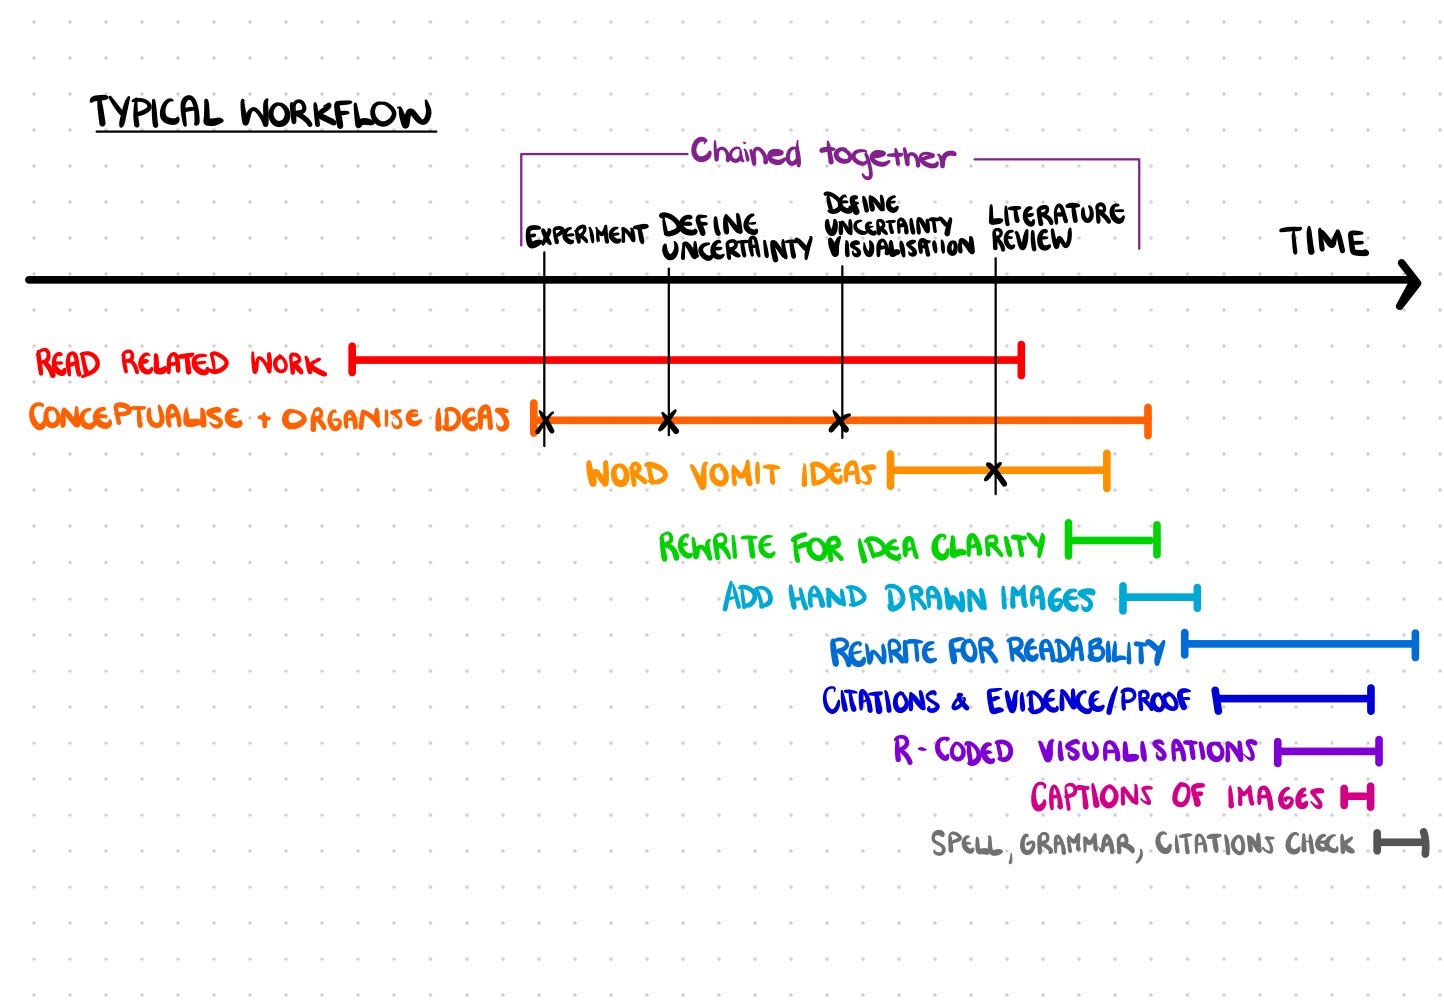 TYPICAL WORKFLOW
Chained together
EXPERIMENT
DEFINE
UNCERTAINTY
DEFINE
UNCERTAINTY
VISUALISATIION
LITERATURE
REVIEW
TIME
READ RELATED WORK
CONCEPTUALISE + ORGANISE IDEAS
WORD VOMIT IDEAS
REWRITE FOR IDEA CLARITY
ADD HAND DRAWN IMAGES
REWRITE FOR READABILITY
CITATIONS & EVIDENCE/PROOF
R-CODED VISUALISATIONS
CAPTIONS OF IMAGES
SPELL, GRAMMAR, CITATIONS CHECK